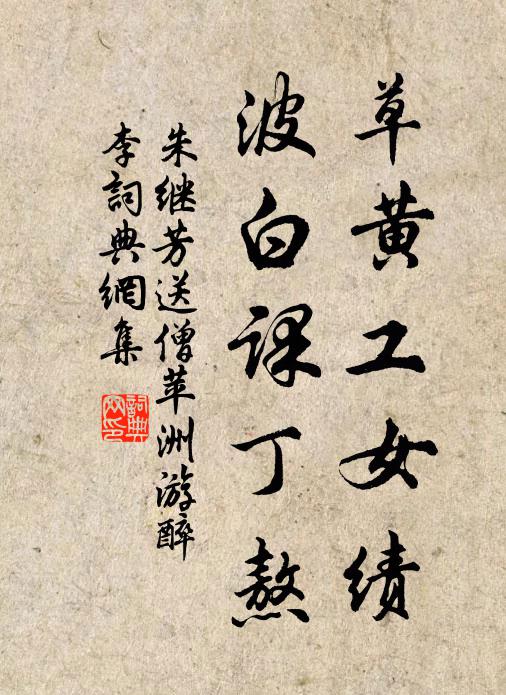 草黄工女绩
波白课丁熬
朱继芳送僧苹洲游醉
李詞典網集
詞典
网印